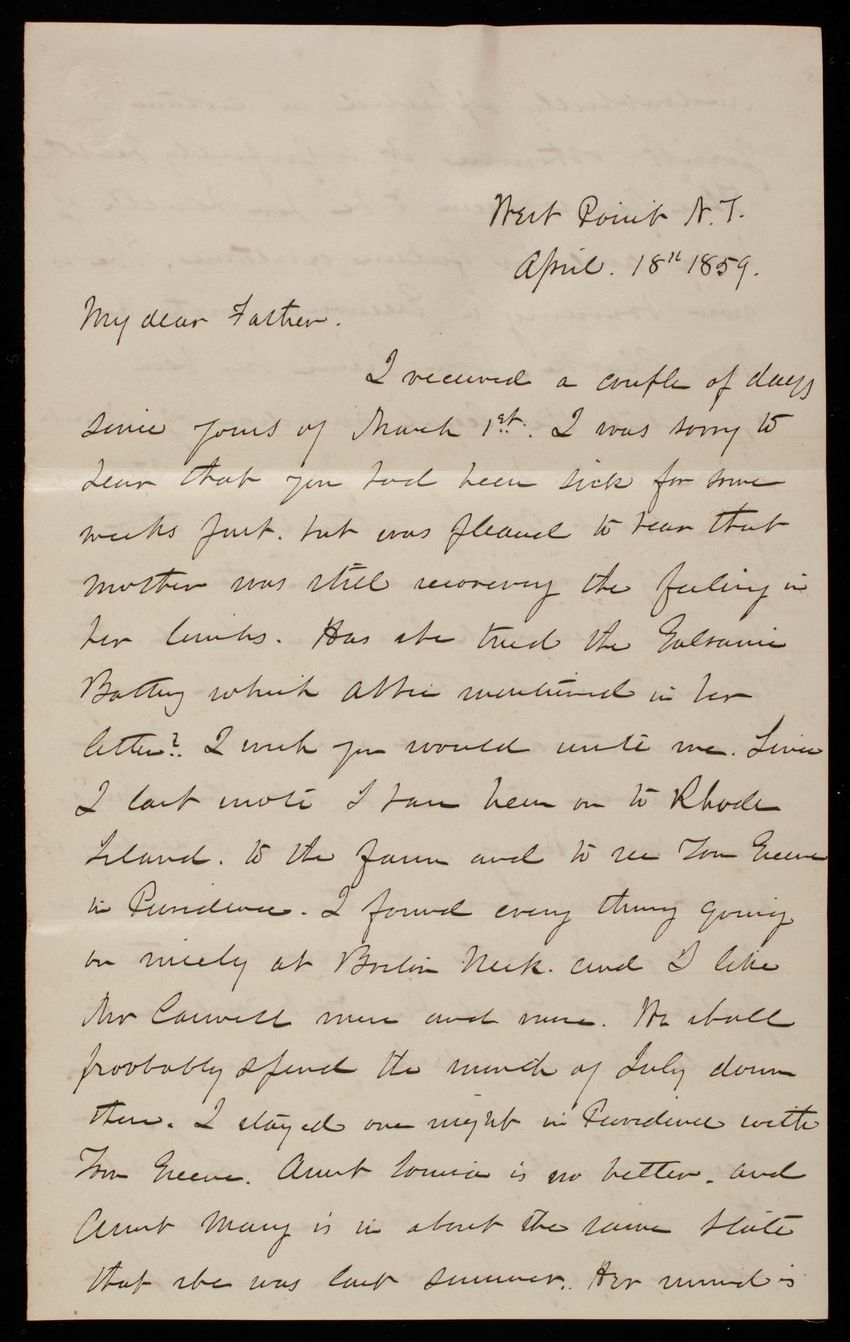 West Point N.Y.
April. 18th 1859.
My dear Father.
I received a couple of days
since yours of March 1st. I was sorry to
hear that you had been sick for some
weeks past. but was pleased to hear that
mother was still recovering the feeling in
her limbs. Has she tried the Galvanic
Battery which Abbie mentioned in her
letter? I wish you would write me. Since
I last wrote I have been on to Rhode
Island. to the farm and to see Tom Greene
in Providence. I found every thing going
on nicely at Boston Neck. and I like
Mr Carwell more and more. We shall
probably spend the month of July down
there. I stayed one night in Providence with
Tom Greene. Aunt Louisa is no better. and
Aunt Mary is in about the same state
that she was last summer. Her mind is